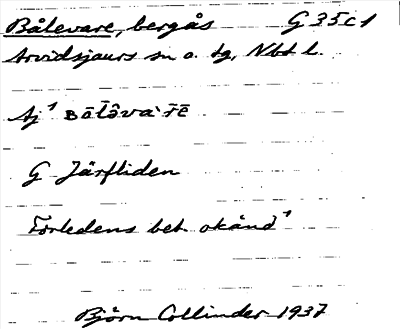 Bålevare, bergås G 35 c 1
Arvidsjaurs sn o. tg, Nbt l.
Aj¹ Bōlōva`rē
G Järfliden
Förledens bet. okänd¹
Björn Collinder 1937